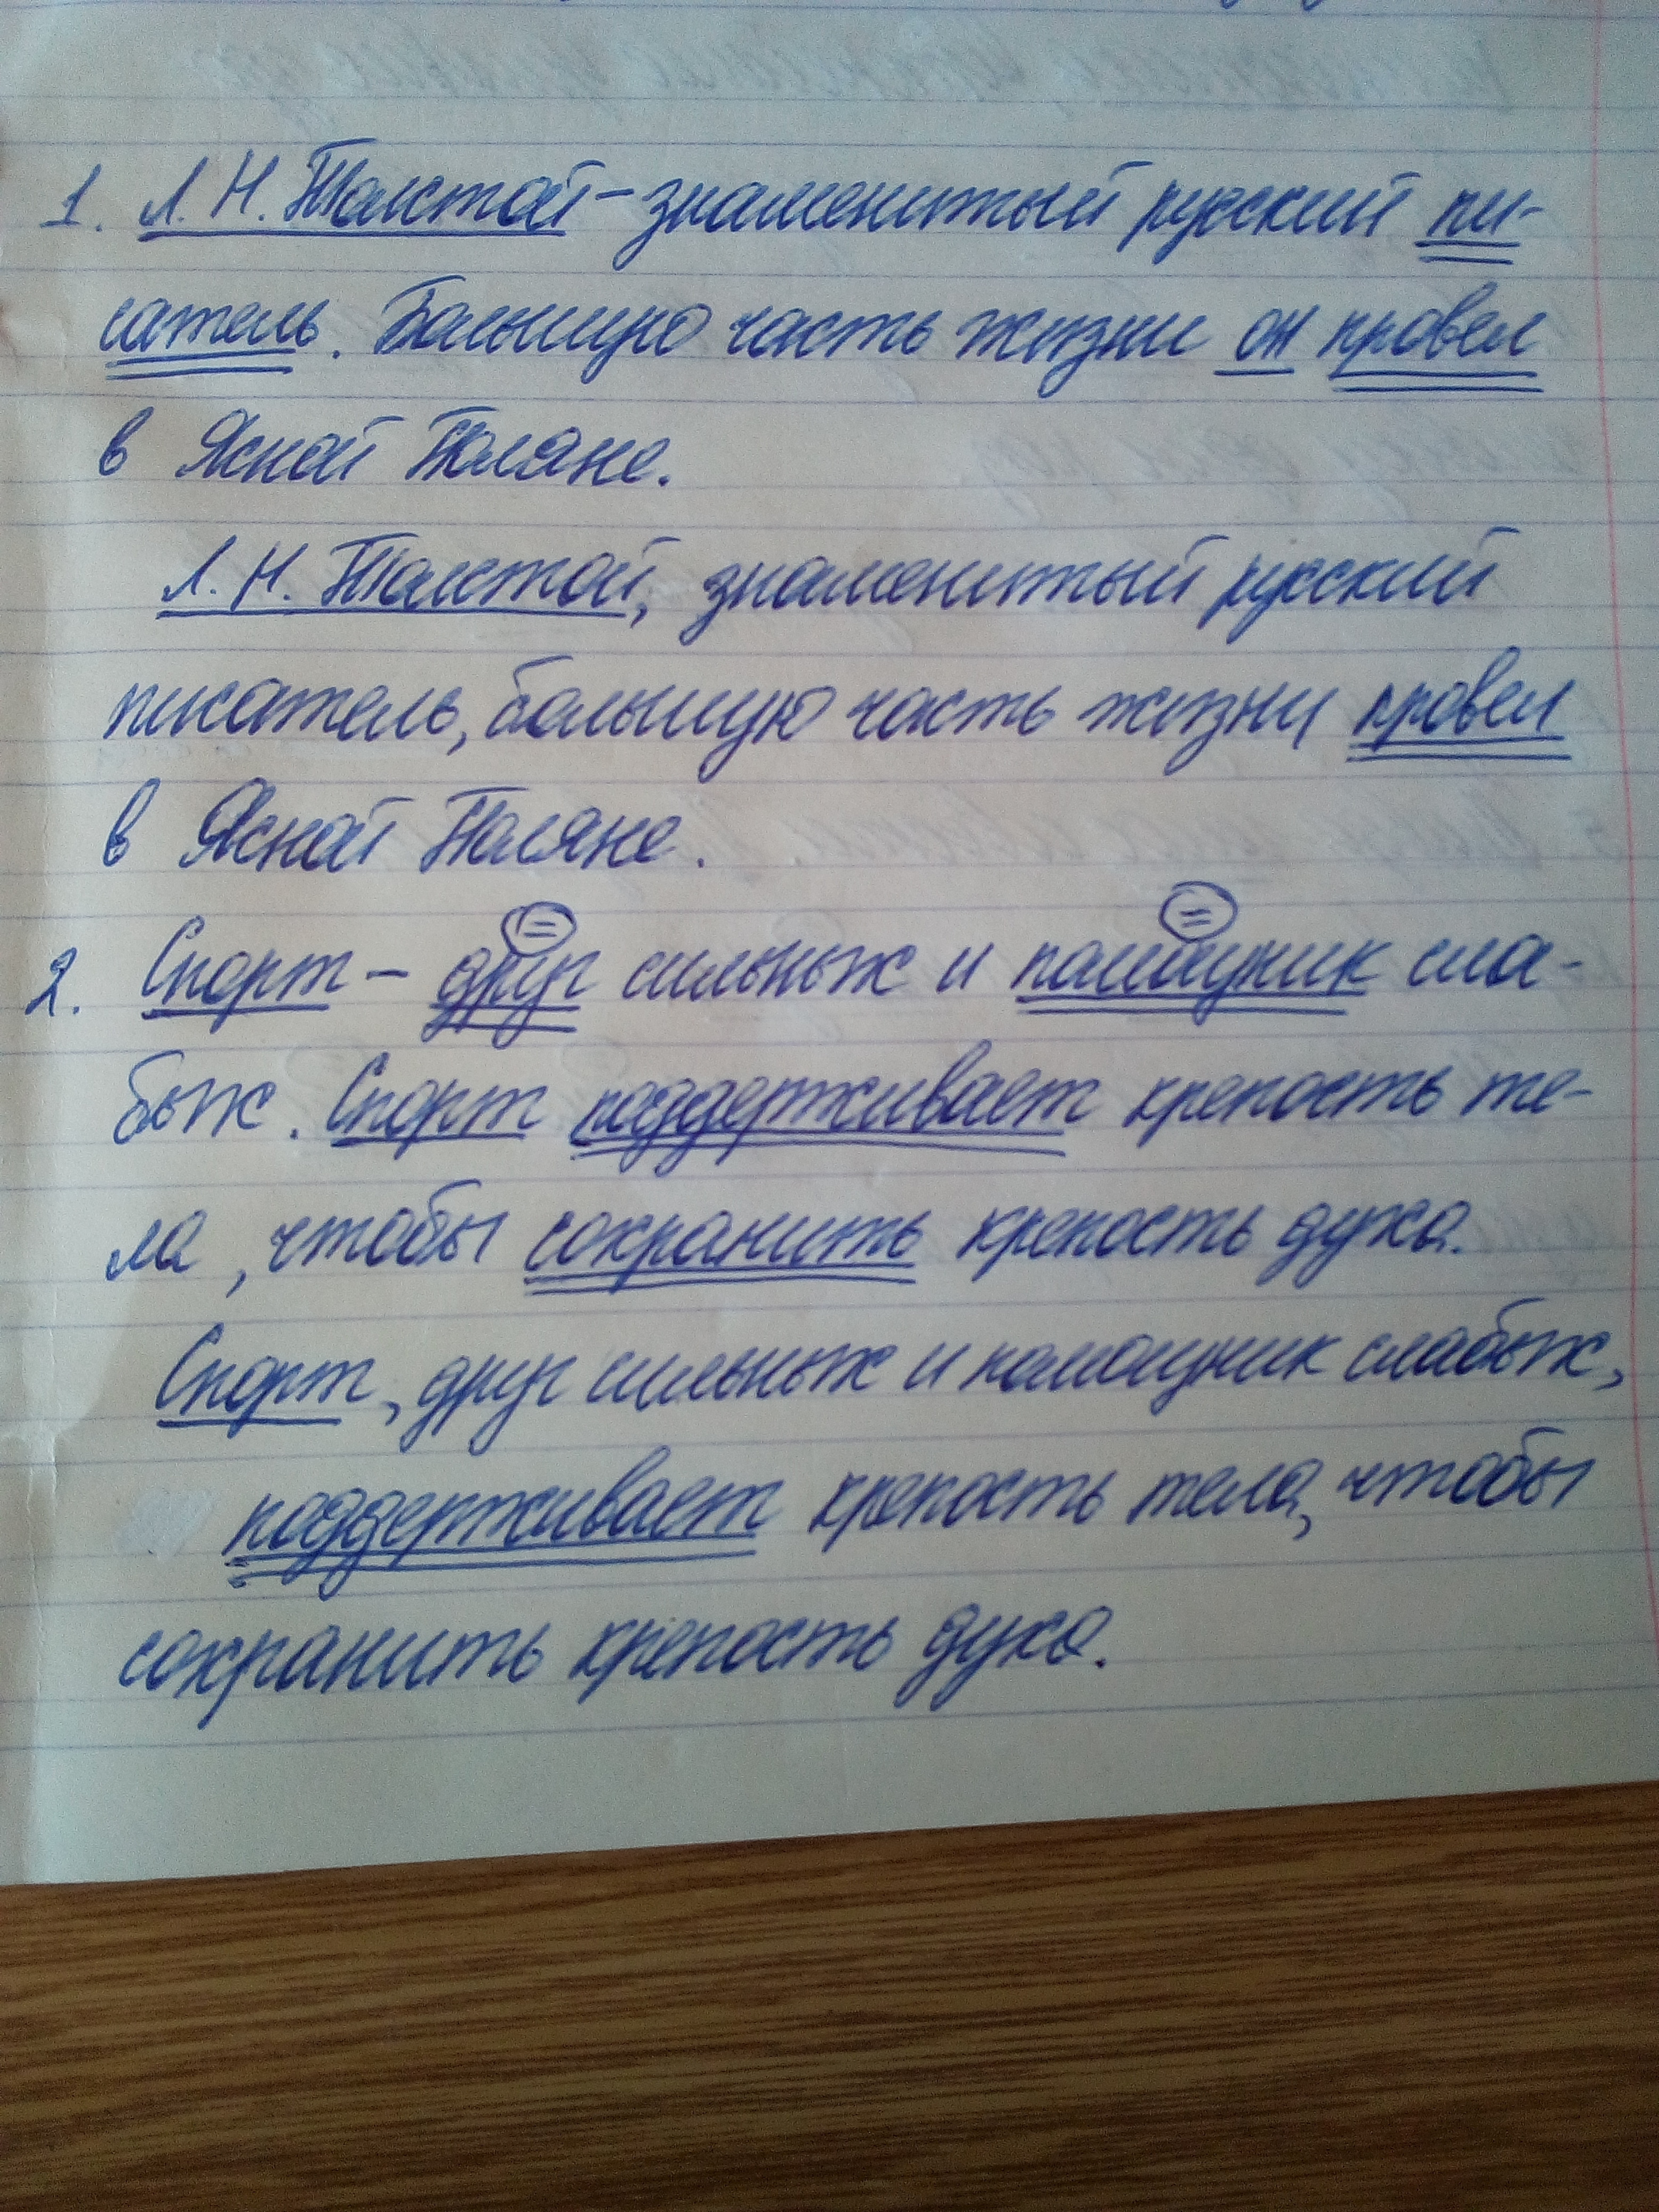 1. Л. Н. Толстой – знаменитый русский пи-
сатель. Большую часть жизни он провел
в Ясной Поляне.
Л. Н. Толстой, знаменитый русский
писатель, большую часть жизни провел
в Ясной Поляне.
2. Спорт – друг сильных и помощник сла-
бых. Спорт поддерживает крепость те-
ла, чтобы сохранить крепость духа.
Спорт, друг сильных и помощник слабых,
поддерживает крепость тела, чтобы
сохранить крепость духа.